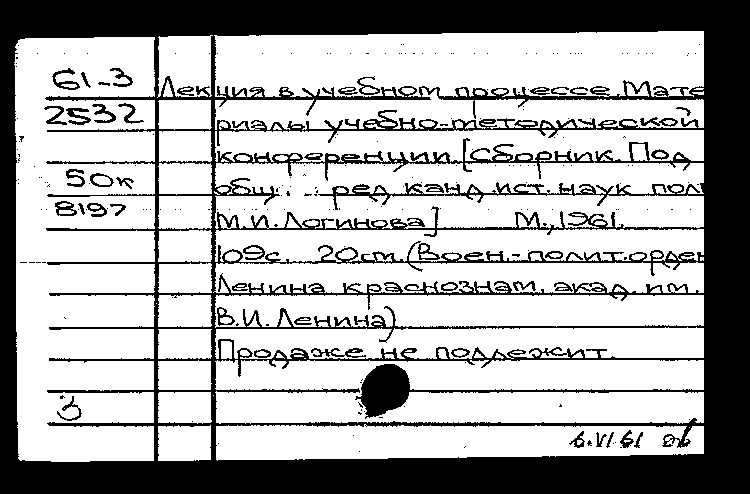 61-3 Лекция в учебном процессе. Мате
2532 риалы учебно-методической
конференции. [Сборник. Под
50к общ. ред. канд. ист. наук
8197 М.И. Логинова] М., 1961.
109с. 20см. (Воен.-полит. орден
Ленина краснознам. акад. им.
В.И. Ленина)
Продаже не подлежит.
3
6.VI 61